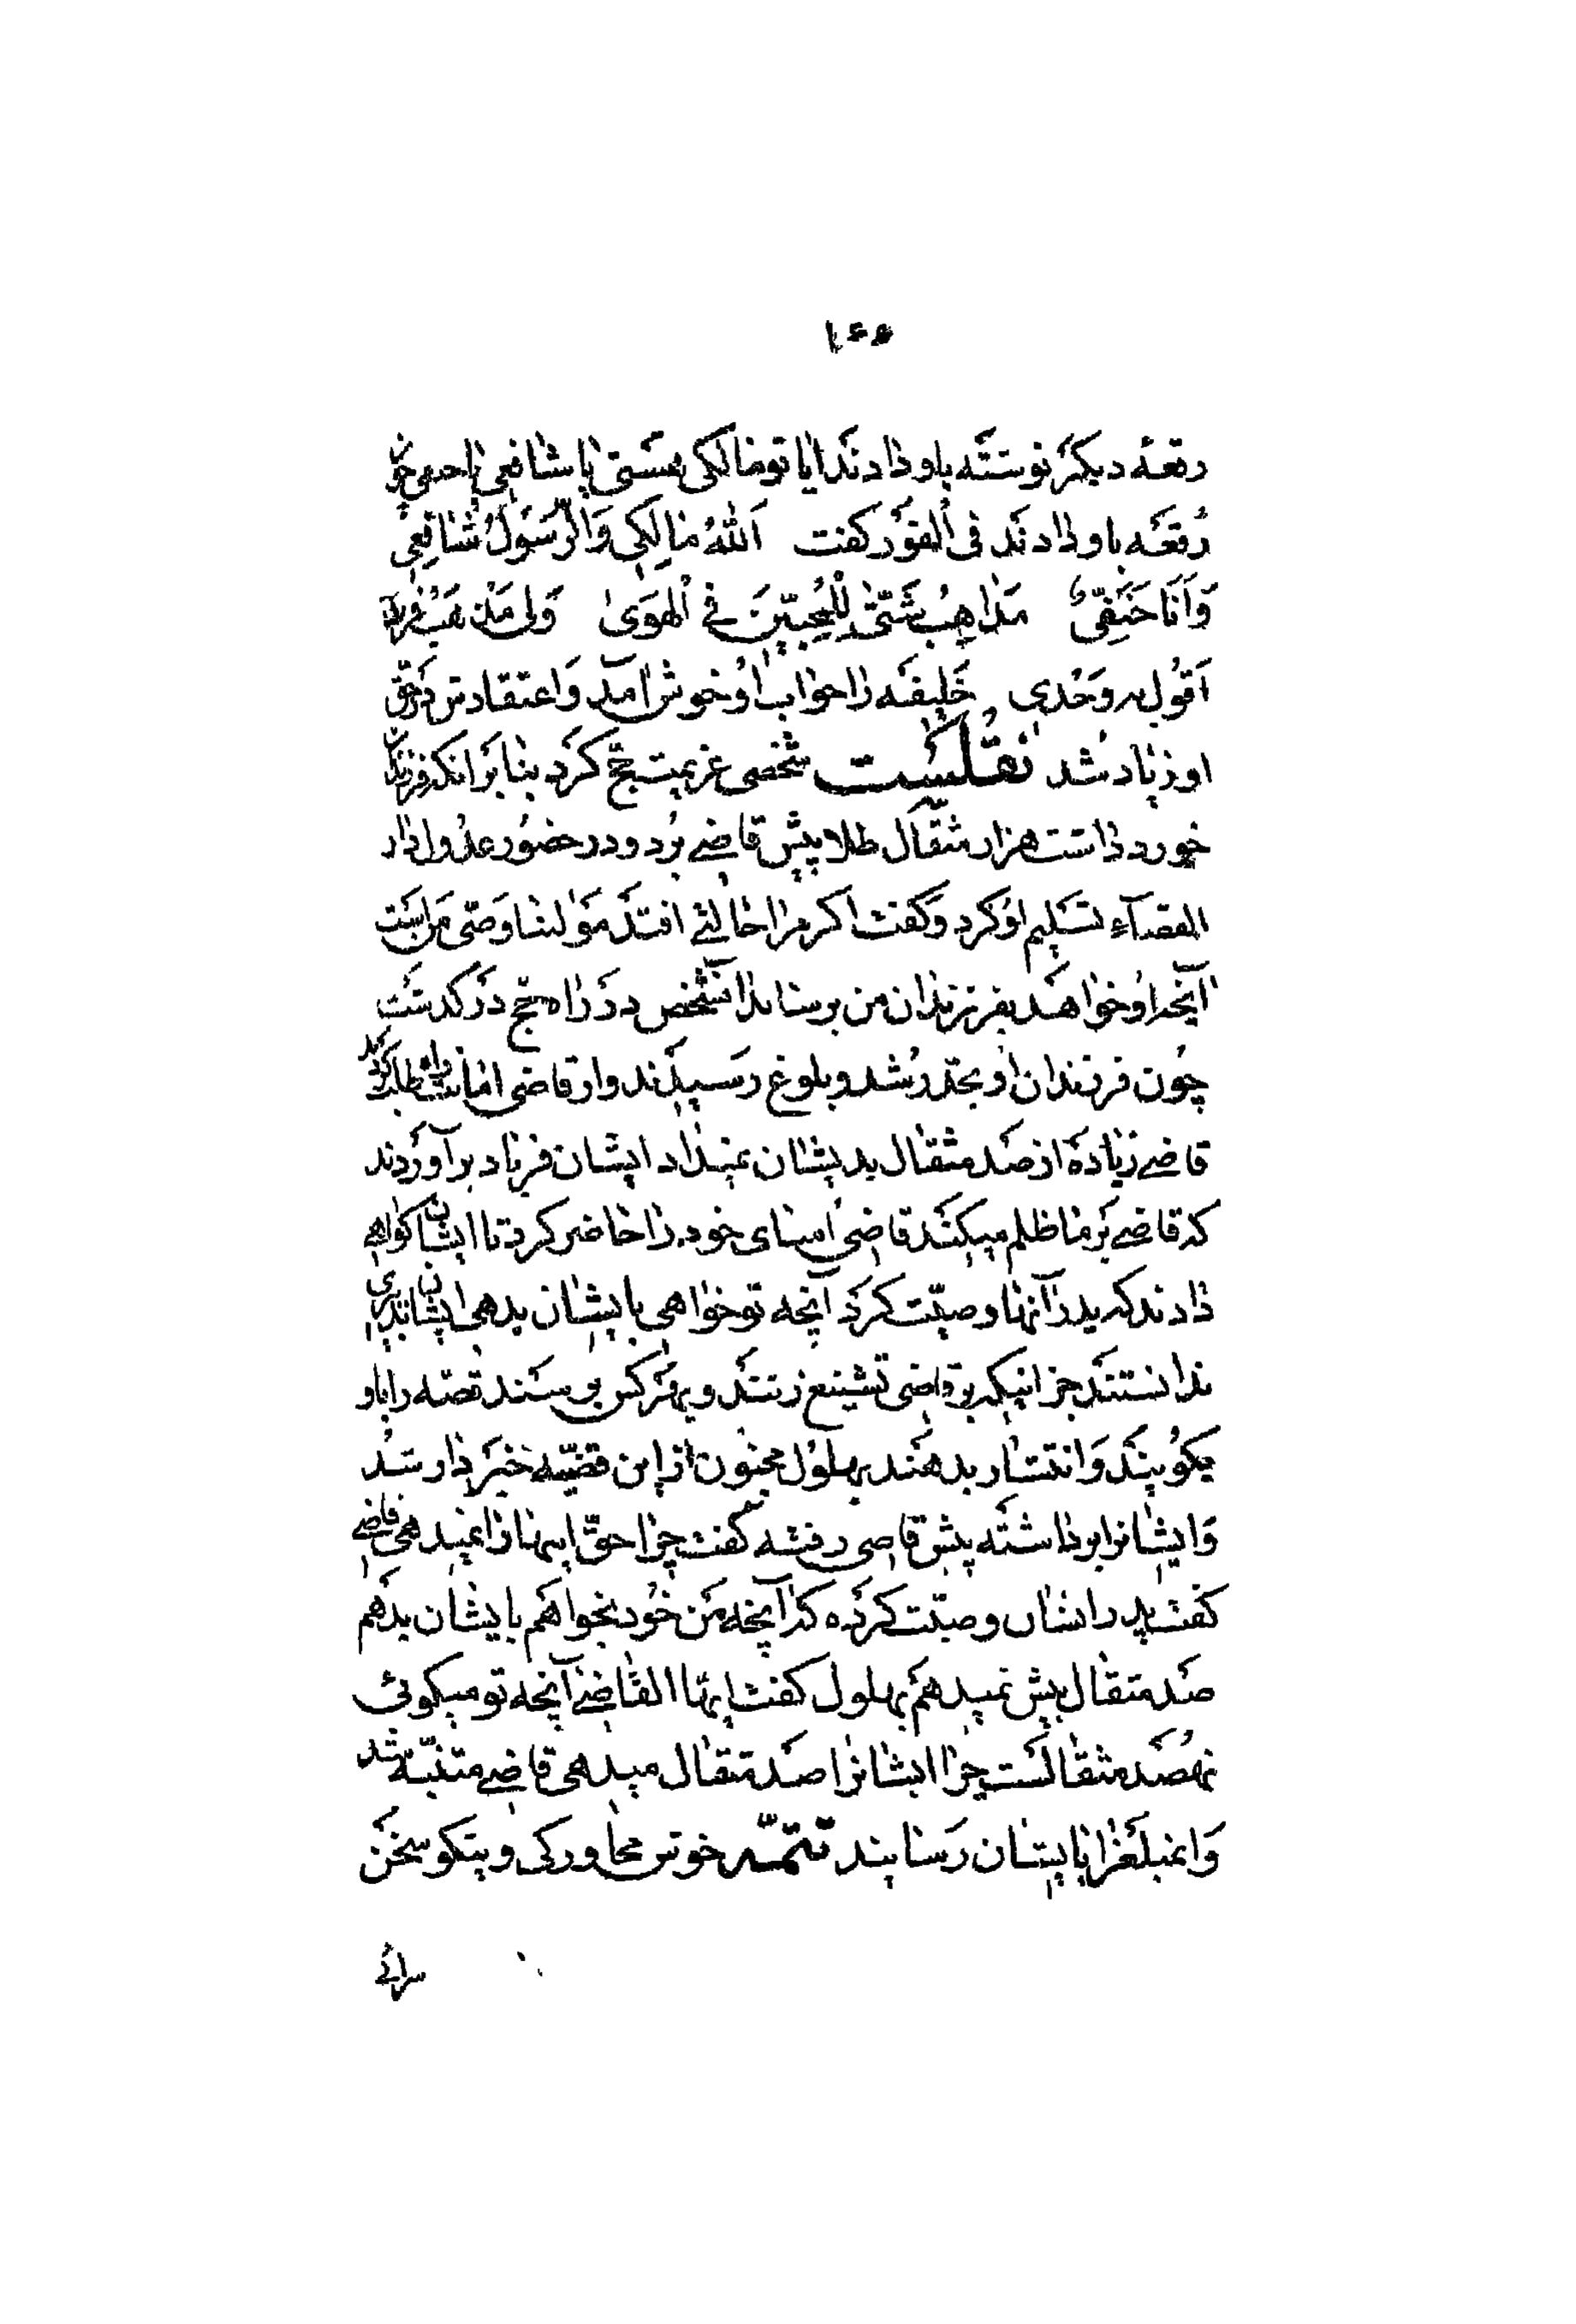 ۱۶۵
رقعهٔ دیکر نوشته باو دادند ایا تو مالکی هستی یا شافعی یا حنفی چون
رُقعَه باو دادند فی الفور کفت اَللهُ مٰالِکِی وَالرَّسُولُ شٰافِعِی
وَاَنَا حَنَفِیٌّ مَذاهِبُ شَتّیٰ لِلْمُحِبّینَ فِی الْهَویٰ وَلی مَذهَبٌ فردٌ
اَقُولُ به وَحْدی خَلیفه را جواب او خوش آمد وَاعتقادش در حق
او زیاد شد نقلست شخصی عزیمت حجّ کرد بنا بر انکه فرزندان
خورد داشت هزار مثقال طلا پیش قاضی بُرد و در حضور عدول دار
القضآء تسلیم او کرد و کفت اکر مرا حالتی افتد مولٰنا وصّی من است
آنچه او خواهد بفرزندان من برساند آنشخص در راه حجّ در کدشت
چون فرزندان او بحدّ رُشد و بلوغ رسیدند و از قاضی امانت را طلب کردند
قاضی زیاده از صد مثقال بدیشان نمیداد ایشان فریاد بر آوردند
که قاضی بر ما ظلم میکند قاضی اُمنای خود را حاضر کرد تا ایشان کواهی
دادند که پدر آنها وصیّت کرد آنچه تو خواهی بایشان بدهی ایشان تدبیری
ندانستند جز اینکه بر قاضی تشنیع زنند و بهر کس برسند قصّه را باو
بکویند وَانتشار بدهند بهلول مجنون از این قضیّه خبر دار شد
وَایشانرا برداشته پیش قاضی رفته کفت چرا حقّ اینها را نمیدهی قاضی
کفت پدر ایشان وصیّت کرده که آنچه من خود بخواهم بایشان بدهم
صد مثقال بیش نمیدهم بهلول کفت ایّها القاضی آنچه تو میکوئی
نهصد مثقالست چرا ایشانرا صد مثقال میدهی قاضی متنبّه شد
وَانمبلغرا بایشان رسانید تتمّه خوش محاورکی و نیکو سخن
سرائی